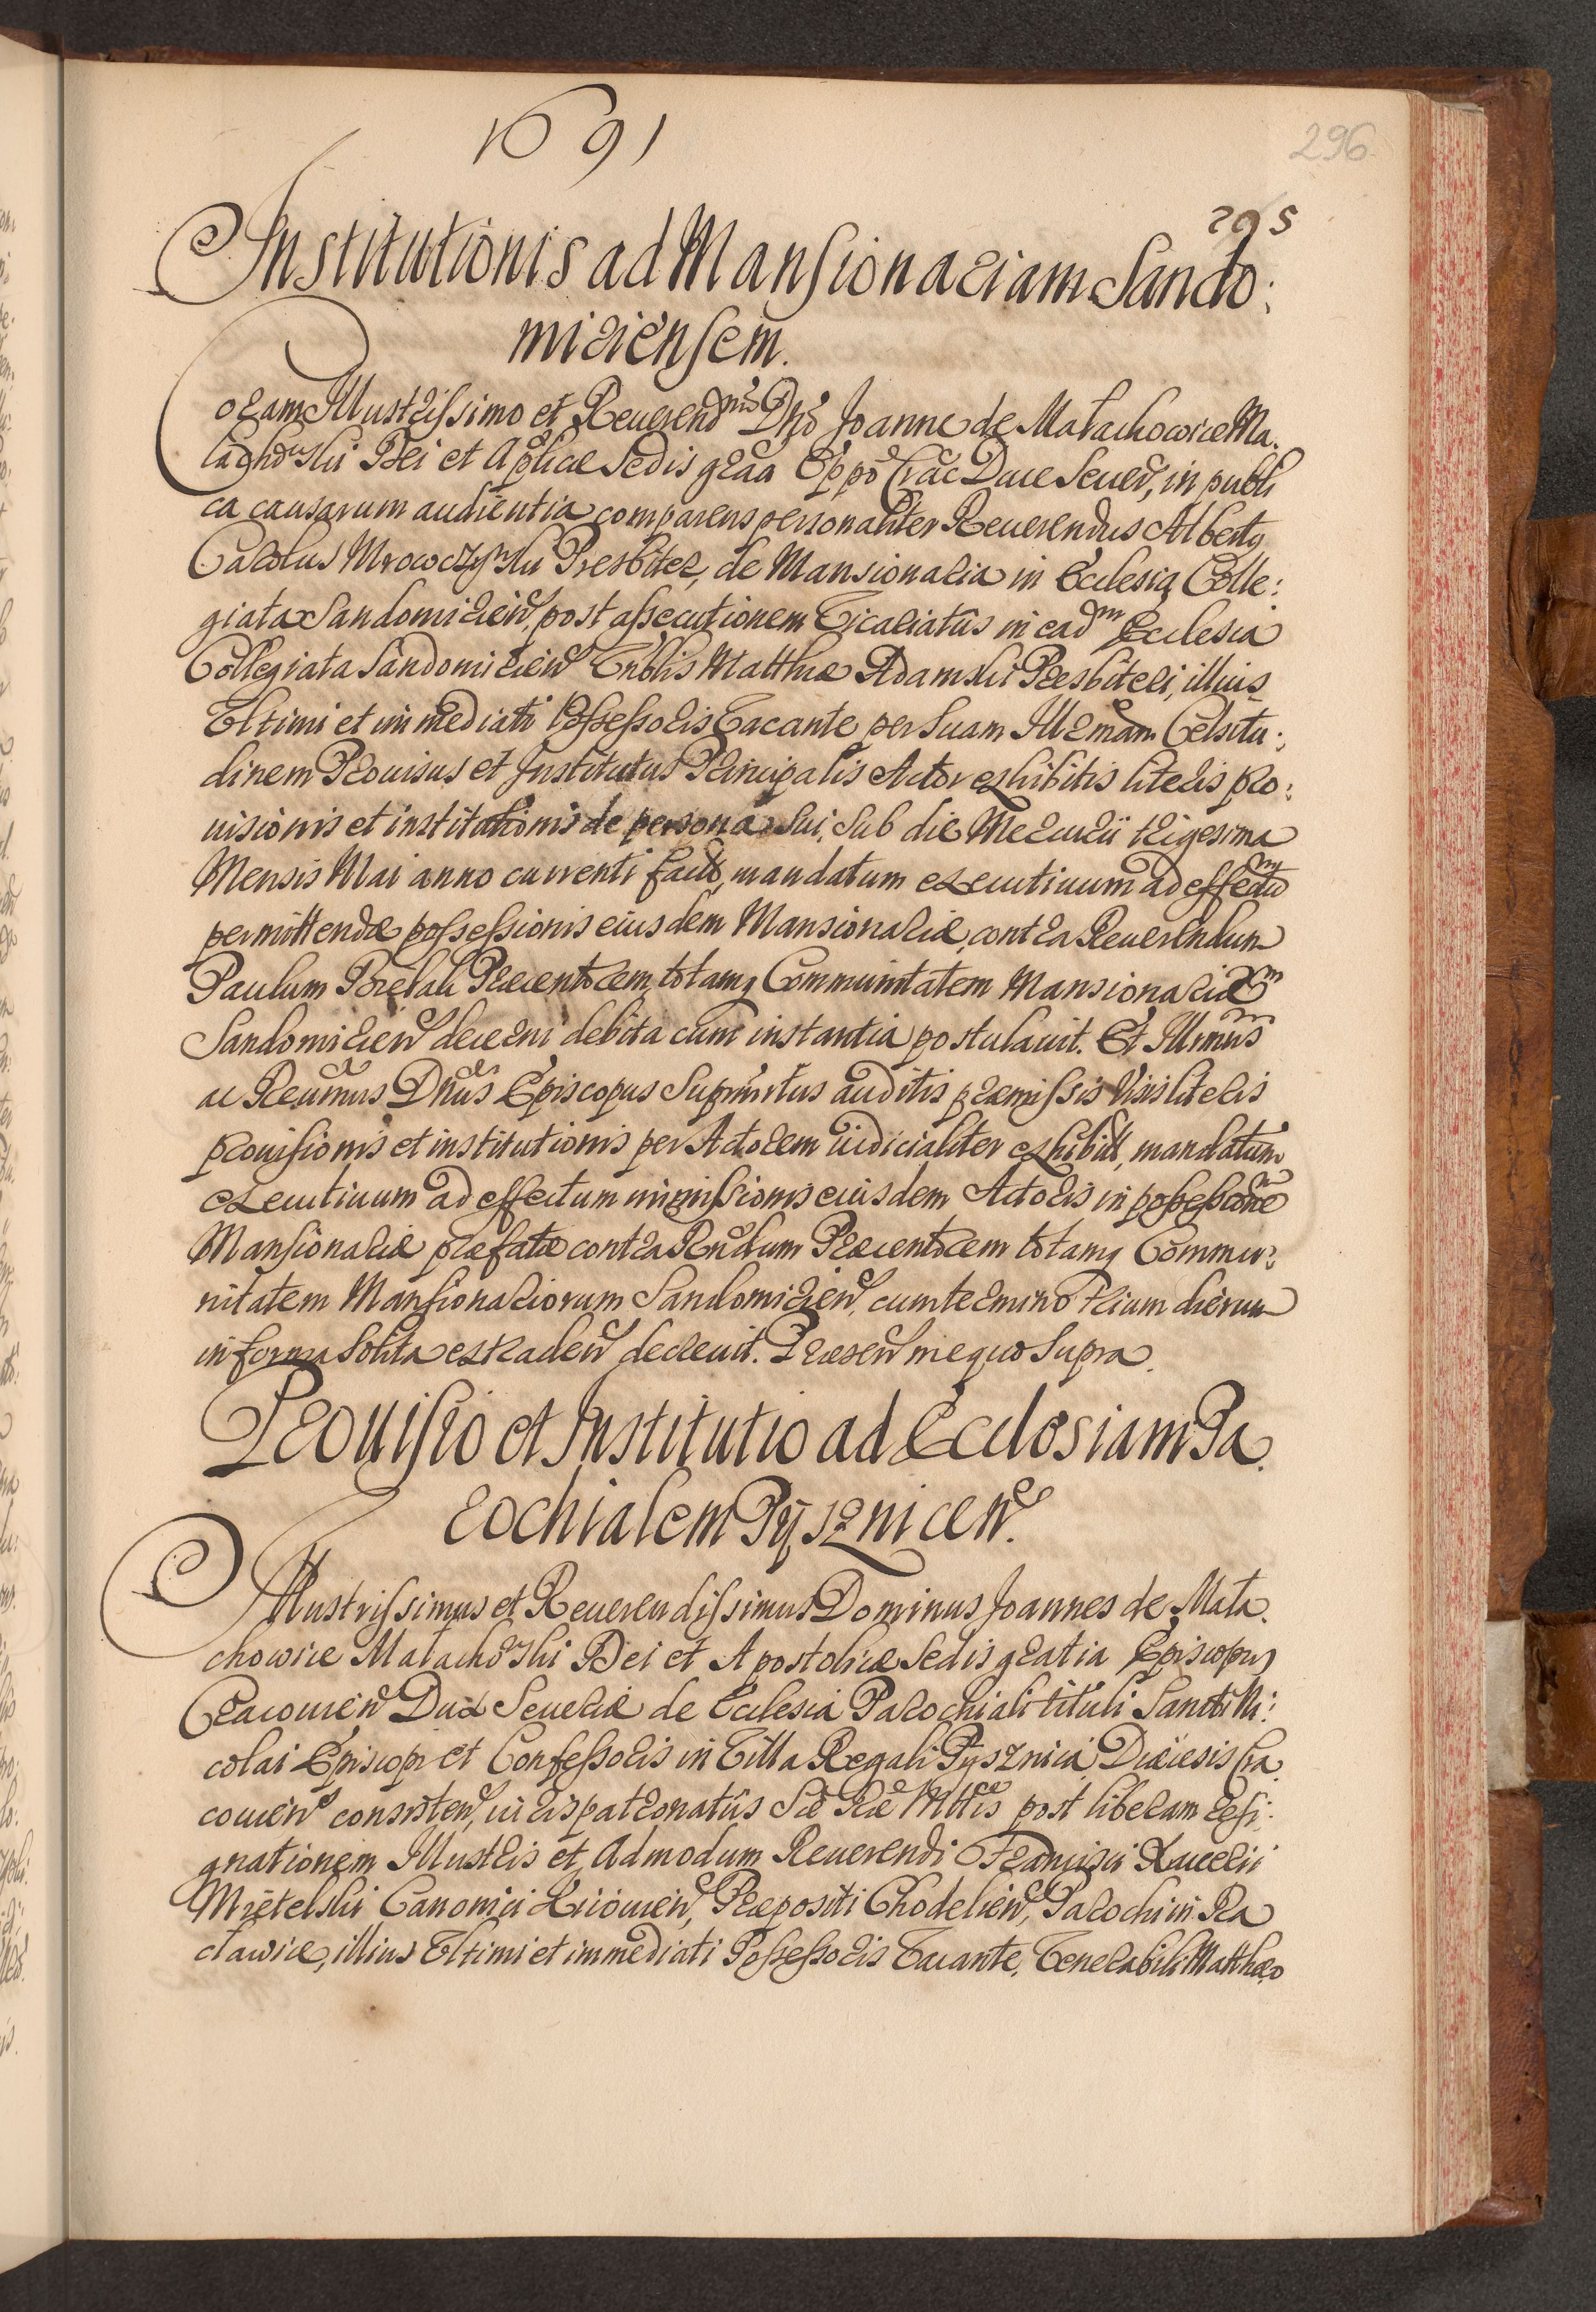 1691
296
295
Institutionis ad Mansionariam Sando:
miriensem.
Coram Illustrissimo et Reverendmo Dño Joanne de Małachowice Ma:
łachowski Dei et Aplicæ Sedis graa Eppo Crac Duce Sever, in publi
ca causarum audientia comparens personaliter Reverendus Albertus
Carolus Mrowczynski Presbiter, de Mansionaria in Ecclesia Colle:
giata Sandomirien, post assecutionem Vicariatûs in eadm Ecclesia
Collegiata Sandomirien Vnblis Matthiæ Adamski Presbiteri, illius
Vltimi et immediati Possessoris Vacante per Suam Illrmam Celsitu:
dinem Provisus et Institutus Principalis Actor exhibitis literis pro:
uisionis et institutionis de persona Sui, Sub die Mercurii trigesima
Mensis Mai anno currenti fact, mandatum executiuum ad effectum
permittendæ possessionis eiusdem Mansionariæ, contra Reuerendum
Paulum Præcentorem, totamq Communitatem Mansionariorum
Sandomirien decerni debita cum instantia postulauit. Et Illmus
ac Reumus Dnus Episcopus Suprmtus auditis præmissis Visis literis
prouisionis et institutionis per Actorem iudicialiter exhibit, mandatum
executiuum ad effectum immissionis eiusdem Actoris in possessione
Mansionariæ præfatæ contra Rndum Præcentorem totamq Commu:
nitatem Mansionariorum Sandomirien, cum termino trium dierum
in forma solita extraden decreuit. Præsen me quo Supra.
Prouisio et Institutio ad Ecclesiam Pa:
rochialem Pysznicen.
Illustrissimus et Reuerendissimus Dominus Joannes de Mała:
chowice Małachowski Dei et Apostolicæ Sedis gratia Episcopus
Cracouien Dux Seueriæ de Ecclesia Parochiali tituli Sancti Ni:
colai Episcopi et Confessoris in Villa Regali Pysznica Diæcesis Cra:
couien consisten, iuris patronatûs Sæ Ræ Mttis post liberam resi:
gnationem Illustris et Admodum Reuerendi Francisci Xauerii
Mietelski Canonici Kiiouien, Præpositi Chodelien, Parochi in Ra
cławice, illius Vltimi et immediati Possessoris Vacante, Venerabili Matthæo